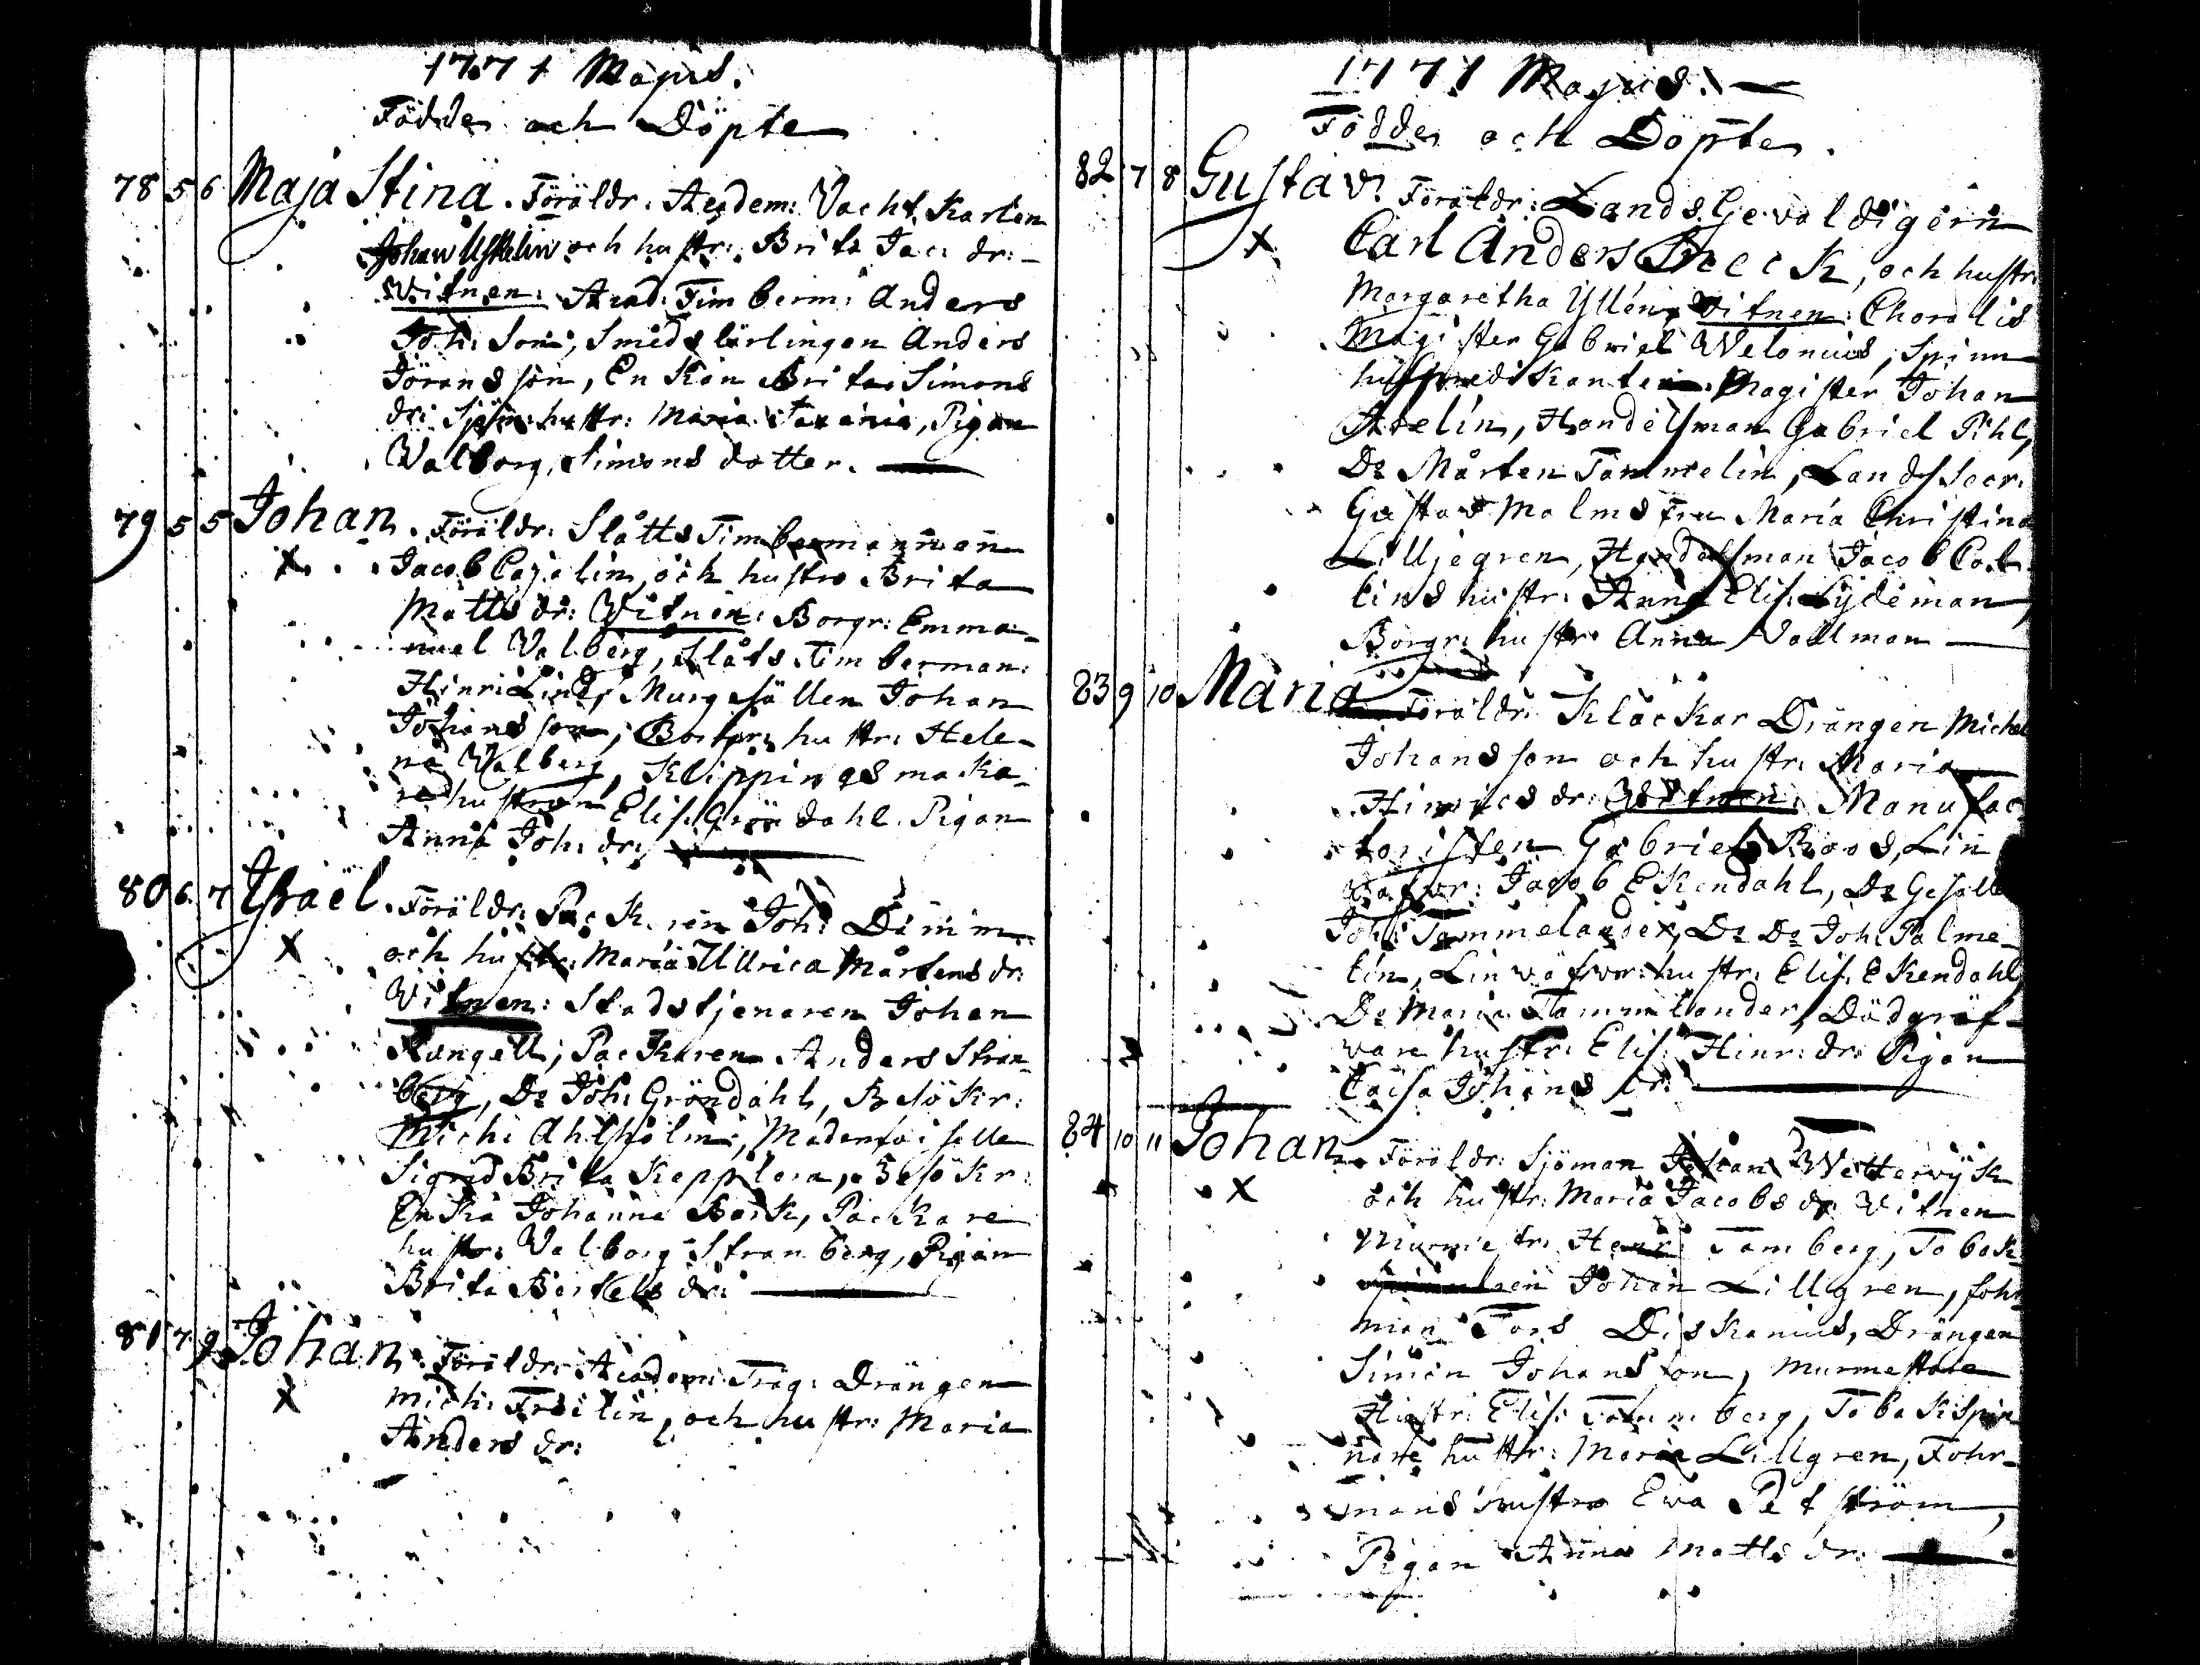 1771 Majus.
Födde och Döpte
78 5 6 Maja Stina. Föräldr. Academ: Vacht Karlen
Johan Ustelin och hustr: Brita Jac: dr: -
Witnen: Acad: Timberm: Anders
Joh: Son, Smeds lärlingen Anders
Jöransson, Enkan Brita Simons
dr: Sjöm: hustr: Maria, Pigan
Walborg Simons dotter.
79 5 5 Johan. Föräldr: Slåtts Timbermannen
X Jacob Cajalin, och hustro Brita
Matts dr: Witnen: Borgr: Emma-
nuel Valberg, Slåts Timberman:
Hinric Lind, Murgesällen Johan
Johansson, Borgr: hustr: Hele-
na Walberg, Klippingsmaka-
re hustrun Elis. Gröndahl. Pigan
Anna Joh: dr:
80 6 7 Israël. Föräldr: Packaren Joh: Dimm
X och hustr: Maria Ullrica Mårtens dr:
Witnen: Stadstjenaren Johan
Rungell, Packaren Anders Stran-
berg, Do Joh: Gröndahl, Besökr:
Mich: Ahlholm, Mademoiselle
Sigrid Brita Kepplera, Besökr:
Enka Johanna Bork, Packare
hustr: Valborg Stranberg, Pigan
Brita Bertels dr:
81 7 9 Johan. Föräldr: Academ: Träg: Drängen
X Mich: Freilin, och hustr: Maria
Anders dr:
1771 Majus.
Födde och Döpte.
82 7 8 Gustav. Föräldr: Lands Gevaldigern
X Carl Anders Bleck, och hustr:
Margaretha Yllén, Witnen: Choralis
Magister Gabriel Welonius, Spinn
huspredikanten Magister Johan
Avelin, Handelsman Gabriel Pihl,
Do Mårten Tammelin, Landssecr.
Gustav Malms Fru Maria Christina
Lilljegren, Handelsman Jacob Car-
lins hustr: Anna Elis. Lydeman,
Borgr: hustr: Anna Vallman
83 9 10 Maria Föräldr: Klåckar Drängen Michel
Johansson och hustr: Maria
Hinrics dr: Witnen: Manufac
toristen Gabriel Roos, Lin
väfvr: Jacob Ekendahl, Do Gesälle
Joh: Tammelander, Do Do Joh: Palme-
lin, Linväfvr: hustr: Elis. Ekendahl,
Do Maria Tammelander, Dödgräf-
vare hustr: Elis: Hinr: dr: Pigan
Caisa Johans dr:
84 10 11 Johan. Föräldr: Sjöman Johan Wetterwijk
X och hustr: Maria Jacobs dr: Vitnen
Murmestr: Henr: Tamberg, Tobak
Johan Lillgren, fohr-
man Fors Diskanius, Drängen
Simon Johansson, Murmestare
Hustr: Elis: Tamberg, Tobakspin
nare hustr: Maria Lillgren, Fohr-
mans hustro Ewa Petström,
Pigan Anna Matts dr: